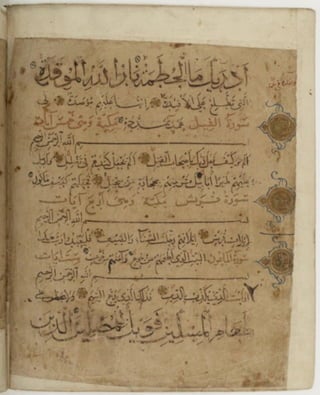 أدريك ما الحطمة نار الله الموقدة
التي تطلع على الأفئدة إنها عليهم مؤصدة في
سورة الفيل عمد ممددة مكية وهي خمس آيات
بسم الله الرحمن الرحيم
ألم تر كيف فعل ربك بأصحاب الفيل ألم يجعل كيدهم في تضليل وأرسل
عليهم طيرا أبابيل ترميهم بحجارة من سجيل فجعلهم كعصف مأكول
سورة قريش مكية وهي أربع آيات
بسم الله الرحمن الرحيم
لإيلاف قريش إيلافهم رحلة الشتاء والصيف فليعبدوا رب هذا
سورة البيت الذي أطعمهم من جوع وآمنهم من خوف آيات
بسم الله الرحمن الرحيم
أرأيت الذي يكذب بالدين فذلك الذي يدع اليتيم ولا يحض على
طعام المسكين فويل للمصلين الذين